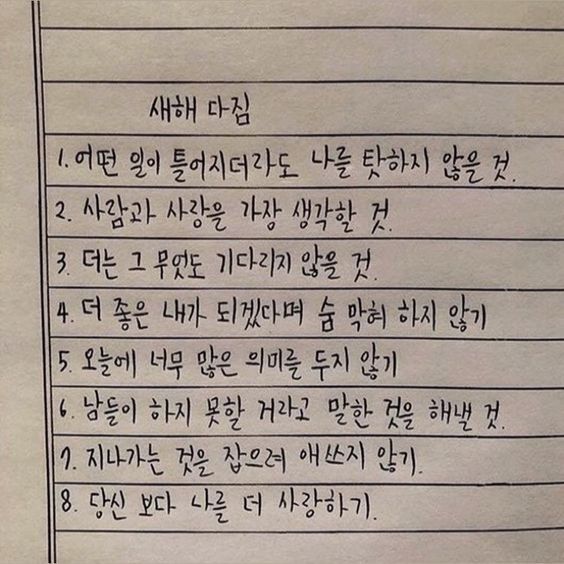 새해 다짐
1. 어떤 일이 틀어지더라도 나를 탓하지 않을 것.
2. 사람과 사랑을 가장 생각할 것.
3. 더는 그 무엇도 기다리지 않을 것.
4. 더 좋은 내가 되겠다며 숨 막혀 하지 않기
5. 오늘에 너무 많은 의미를 두지 않기
6. 남들이 하지 못할 거라고 말한 것을 해낼 것.
7. 지나가는 것을 잡으려 애쓰지 않기.
8. 당신 보다 나를 더 사랑하기.